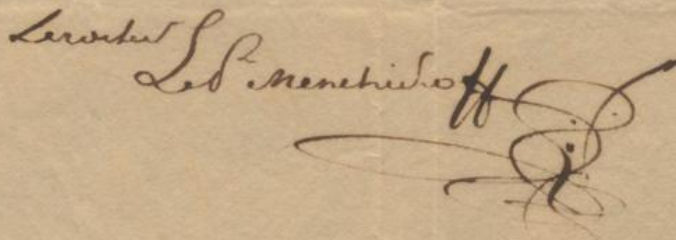 Serviteur
Le P. Menchikoff